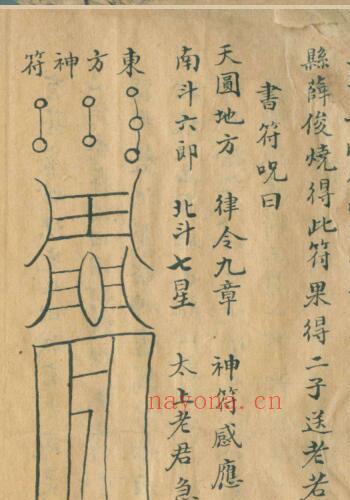 縣薛俊燒得此符果得二子送老君
書符呪曰
天圓地方　律令九章　神符感應
南斗六郎　北斗七星　太上老君急
東方神符
nayona.cn